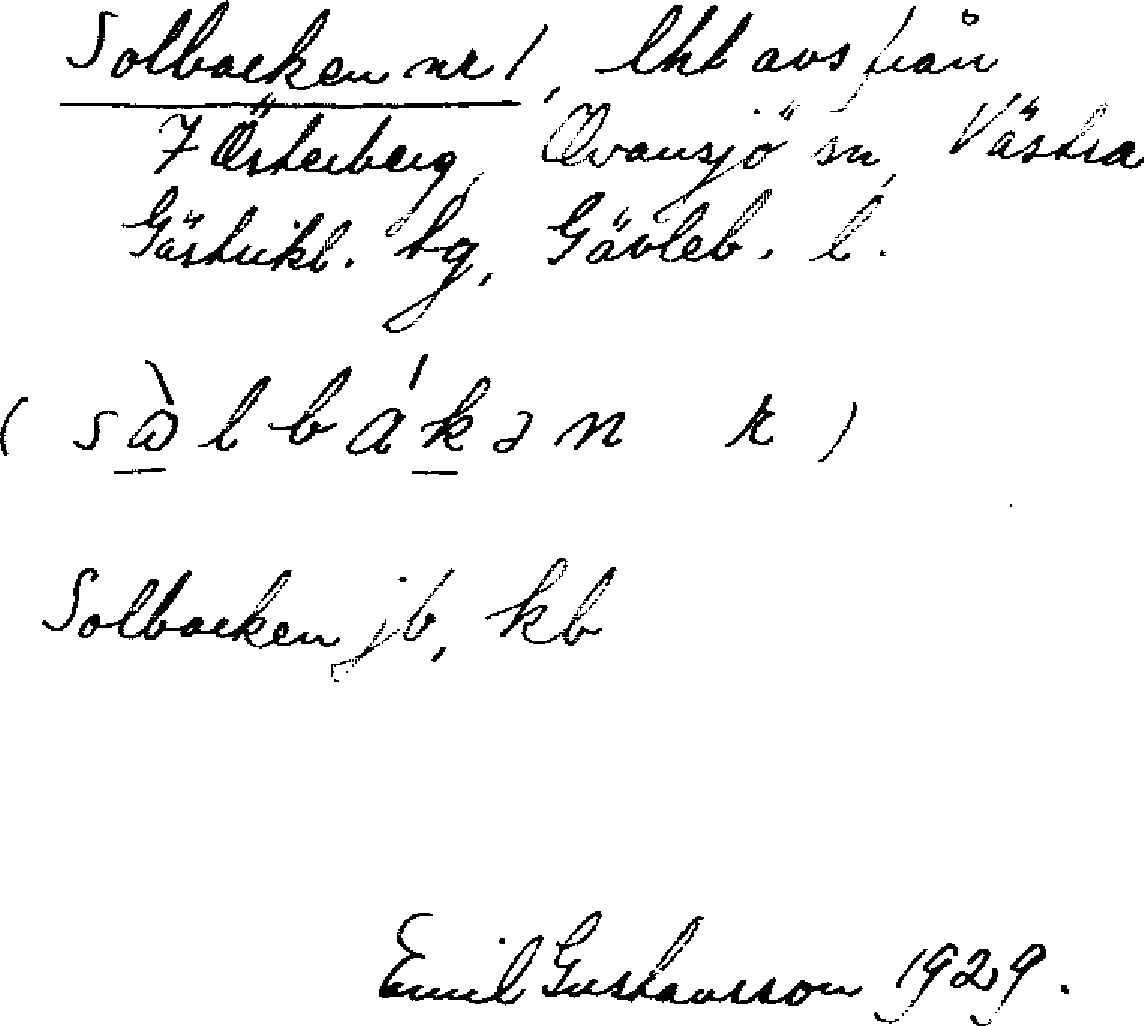 Solbacken nr 1, lht avs från
7 Österberg, Ovansjö sn, Västra
Gästrikl. tg, Gävleb. l.
(sὼlbákən k)
Solbacken jb, kb
Emil Gustavsson 1929.